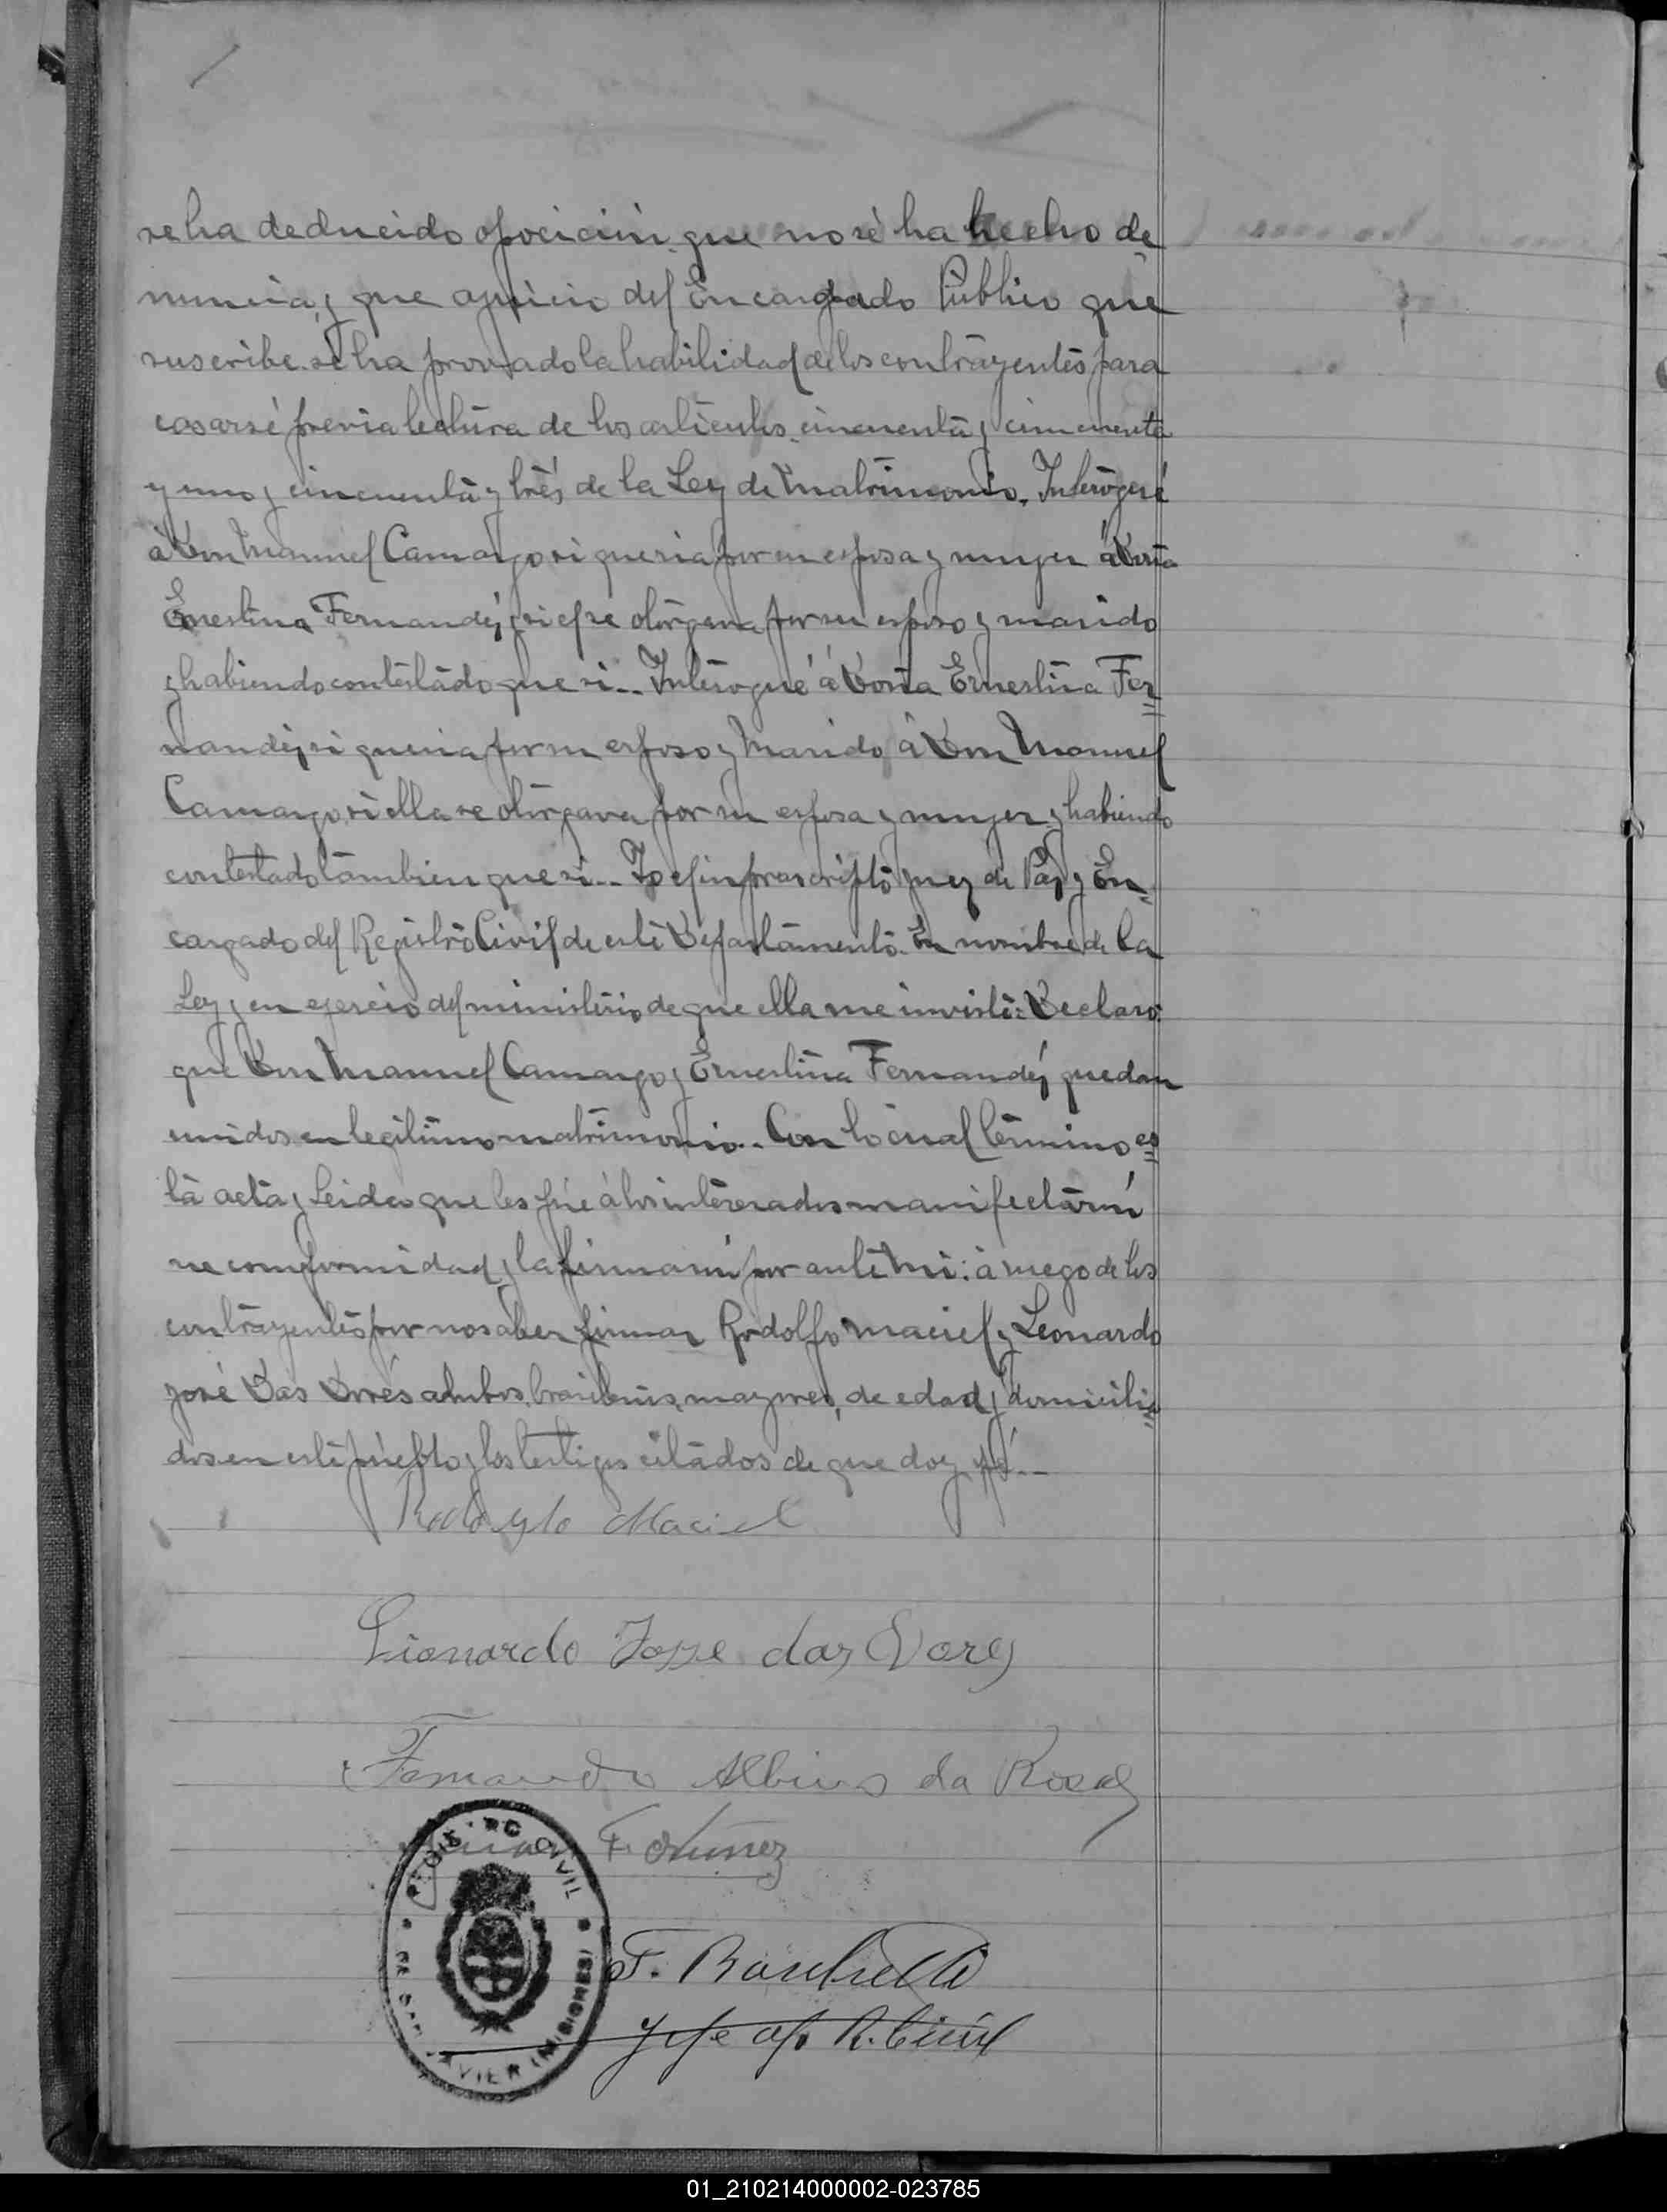 se ha deducido oposición que no sé ha hecho de
nuncia, y que a juicio del Encargado Público que
suscribe sé ha provado la habilidad de los contrayentes para
casarsé previa lectura de los articulos cincuenta y cincuenta
y uno y cincuenta y trés de la Ley de Matrimonio. Interogué
á Don Manuel Camargo si queria por su esposa y mujer á Doña
Ernestina Fernandez, si el se otorgava por su esposo y marido
y habiendo contestado que si.. Interogué á Doña Ernestina Fer=
nandez si queria por su esposo y Marido á Don Manuel
Camargo si ella se otorgava por su esposa y mujer y habiendo
contestado tambien que si.. Yo el infrascripto juez de Paz y En=
cargado del Registro Civil de este Departamento En nombre de la
Ley y en ejercio del ministerio de que ella me inviste: Declaro:
que Don Manuel Camargo y Ernestina Fernandez quedan
unidos en legitimo matrimonio.. Con lo cual termino es=
ta acta y Leida que les fué á los interesados manifestarón
su comformidad y la firmarón por ante Mi: á ruego de los
contrayentes por no saber firmar Rodolfo Maciel y Leonardo
José Das Dores ambos, brasileros, mayores, de edad y domicilia=
dos en este pueblo y los testigos citados de que doy fé..
Rodolfo Maciel
Lionardo Josse das Dores
Fernando Albino da Rosa
F. Nuñez
F.
Jefe del R. Civil
REGISTRO CIVIL
DE SAN JAVIER (MISIONES)
01_210214000002-023785